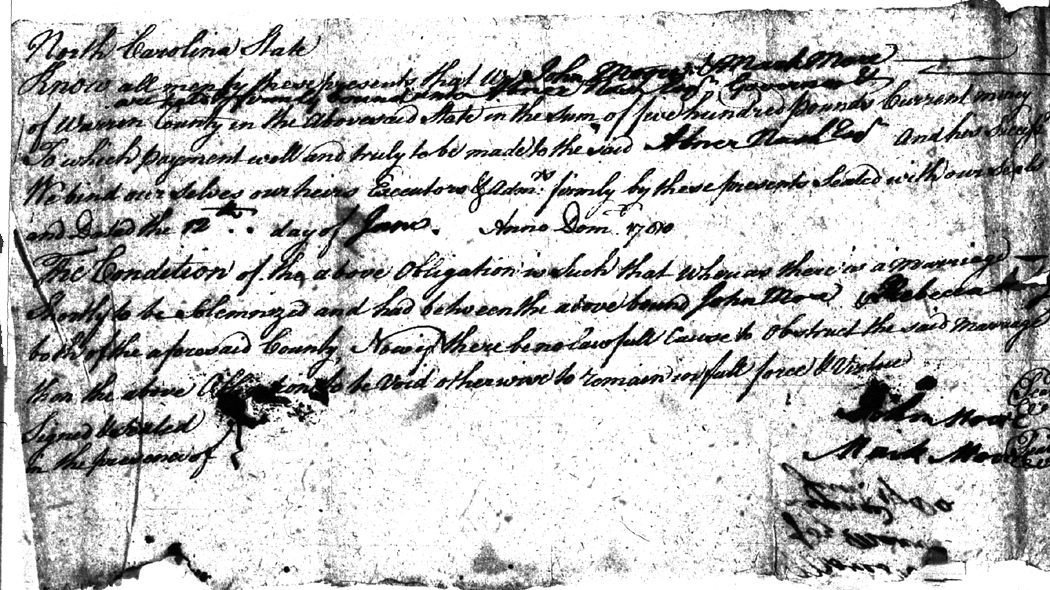 North Carolina State
Know all men by these presents that We John Moore & Mark Moore
are held & firmly bound unto Abner Nash Esqr Governor &c
of Warren County in the abovesaid State in the sum of five hundred pounds Current money
To which payment well and truly to be made to the said Abner Nash Esqr And his Success
We bind our selves our heirs Executors & Admrs firmly by these presents Sealed with our seals
and Dated the 12th day of June. Anno Dom 1780
The Condition of the above Obligation is such that whereas there is a marriage
Shortly to be Solemnized and had between the above bound John More & Rebecca
both of the aforesaid County. Now if there be no Lawfull Cause to Obstruct the said Marriage
than the above Obligation to be Void otherwise to remain in full force & Virtue
Signed & Sealed
in the presence of
John Moore
Mark Moore